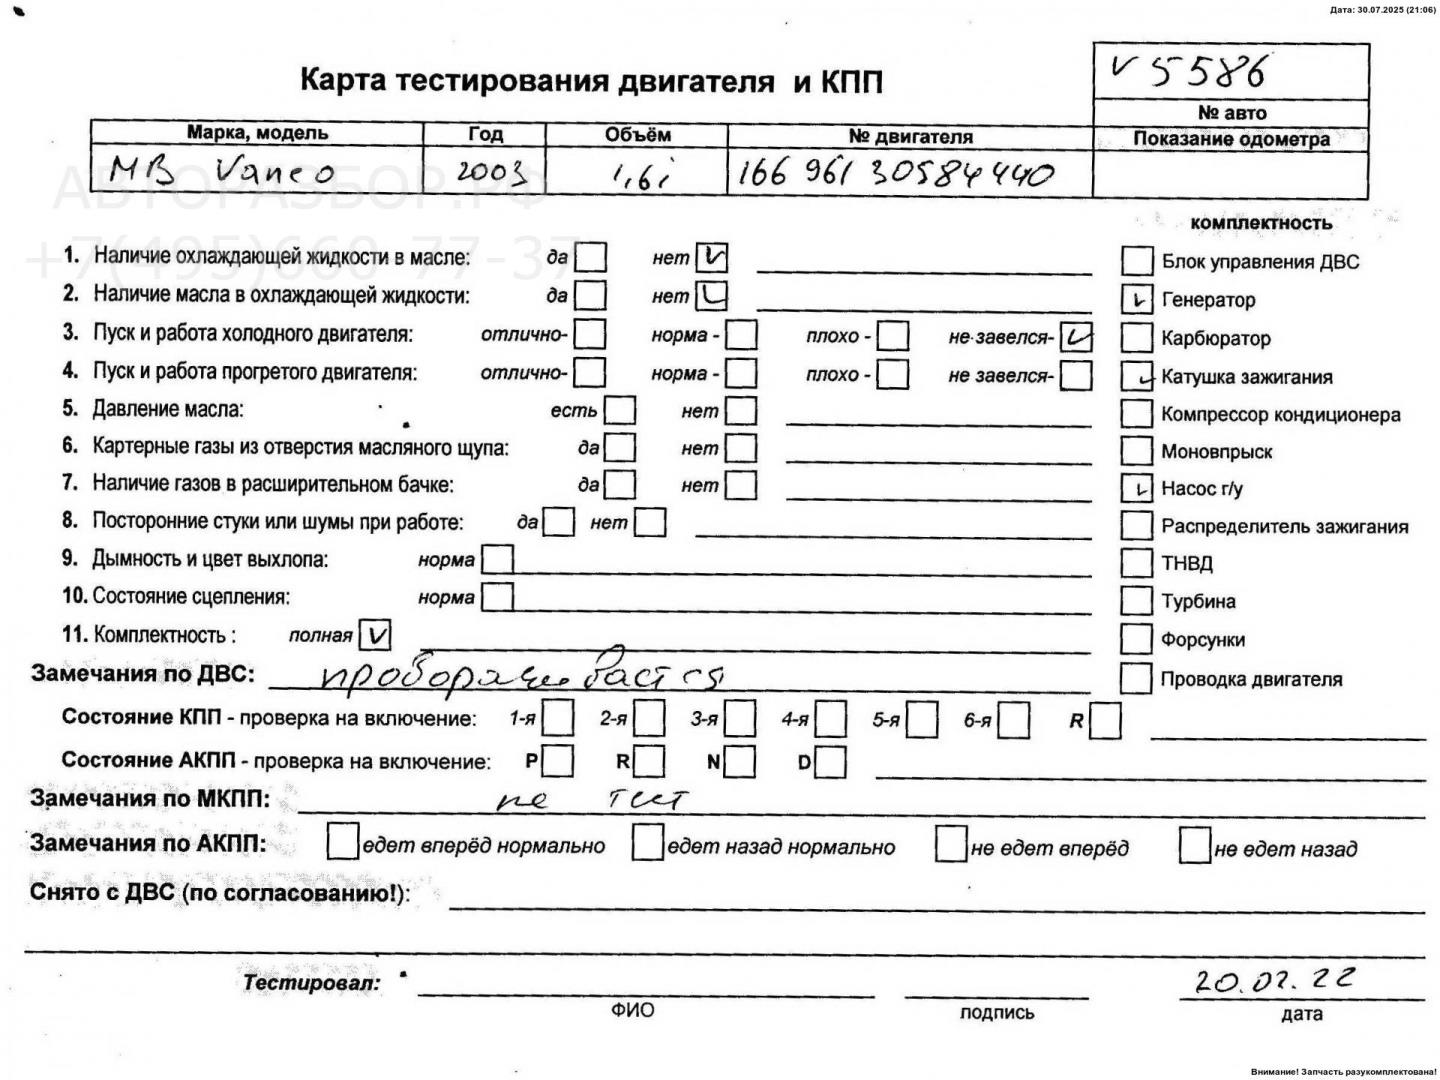 Дата: 30.07.2025 (21:06)
V 5586
Карта тестирования двигателя и КПП
№ авто
Марка, модель Год Объём № двигателя Показание одометра
MB Vaneo 2003 1,6i 166 961 30584440
АВТОРАЗБОР.РФ
+7(495)660-77-37
комплектность
1. Наличие охлаждающей жидкости в масле: да нет V Блок управления ДВС
2. Наличие масла в охлаждающей жидкости: да нет V Генератор
3. Пуск и работа холодного двигателя: отлично- норма - плохо - не завелся- V Карбюратор
4. Пуск и работа прогретого двигателя: отлично- норма - плохо - не завелся- Катушка зажигания
5. Давление масла: есть нет Компрессор кондиционера
6. Картерные газы из отверстия масляного щупа: да нет Моновпрыск
7. Наличие газов в расширительном бачке: да нет Насос г/у
8. Посторонние стуки или шумы при работе: да нет Распределитель зажигания
9. Дымность и цвет выхлопа: норма ТНВД
10. Состояние сцепления: норма Турбина
11. Комплектность : полная V Форсунки
Замечания по ДВС: Проводка двигателя
Состояние КПП - проверка на включение: 1-я 2-я 3-я 4-я 5-я 6-я R
Состояние АКПП - проверка на включение: P R N D
Замечания по МКПП: не тест
Замечания по АКПП: едет вперёд нормально едет назад нормально не едет вперёд не едет назад
Снято с ДВС (по согласованию!):
Тестировал: 20.02.22
ФИО подпись дата
Внимание! Запчасть разукомплектована!